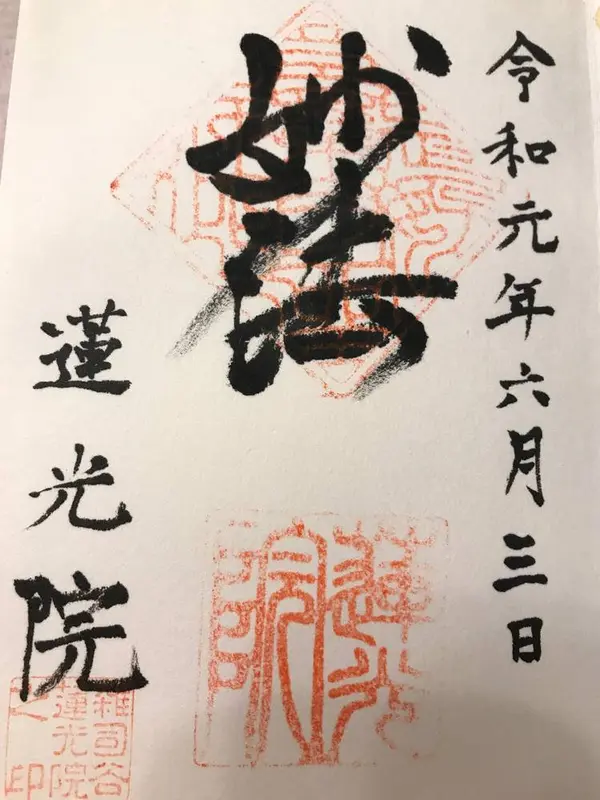 令和元年六月三日
妙法
蓮光院
蓮光
院
雑司谷
蓮光院
之印